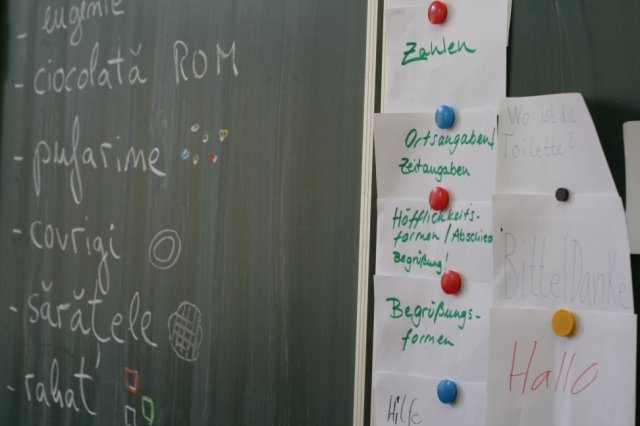 - eugenie
- ciocolată ROM
- pufarine
- covrigi
- sărățele
- rahat
Zahlen
Ortsangaben/
Zeitangaben
Höfflichkeits-
formen / Abschied
Begrüßung!
Begrüßungs-
formen
Hilfe
Wo ist die
Toilette?
Bitte/Danke
Hallo